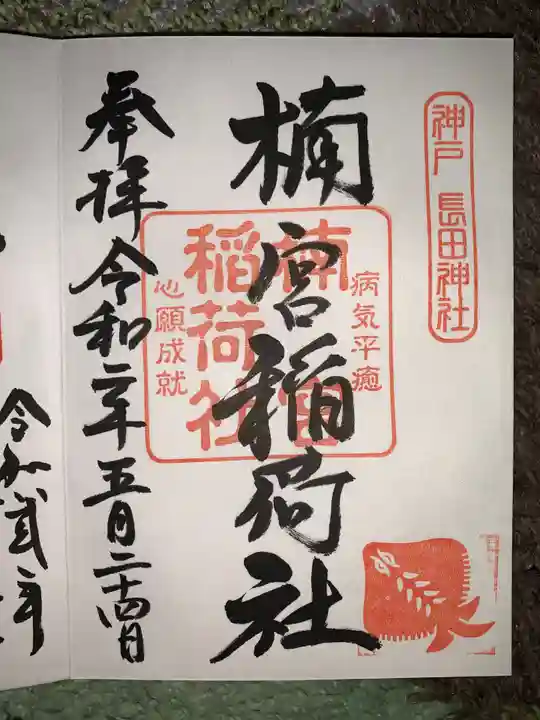 神戸 長田神社
病気平癒
楠宮稲荷社
楠宮
稲荷社
心願成就
奉拝 令和二年五月二十四日
令和弐年